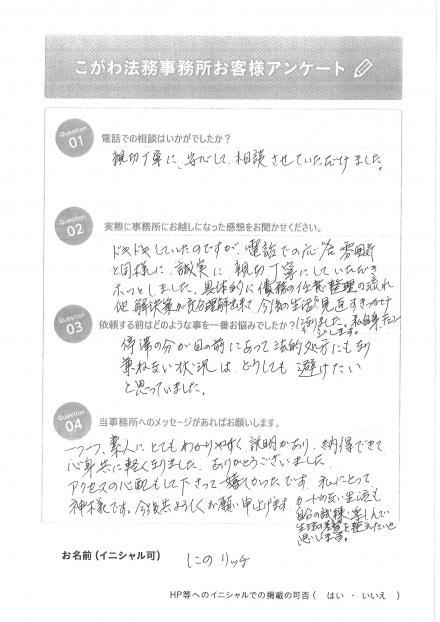 こがわ法務事務所お客様アンケート
Question
01
電話での相談はいかがでしたか？
親切丁寧に、安心して、相談させていただけました。
Question
02
実際に事務所にお越しになった感想をお聞かせください。
ドキドキしていたのですが、電話での応答 雰囲気
と同様に、誠実に 親切丁寧にしていただき
ホッとしました。具体的に債務の任意整理の流れ
他 解決案が充分理解出来て、今後の生活を見直すきっかけ
になりました。私自身
Question
03
依頼する前はどのような事を一番お悩みでしたか？
停滞の分が目の前にあって法的処分にもなり
兼ねない状況は、どうしても 避けたい
と思っていました。
Question
04
当事務所へのメッセージがあればお願いします。
一つ一つ、素人に とてもわかりやすく 説明があり、納得できて
心身共に軽くなりました。ありがとうございました。
アクセスの心配もして下さって嬉しかったです。私にとって
神様です。今後共よろしくお願い申し上げます。カードのない生活も
自分の試練、楽しんで
生活の基盤を整えたいと
思います。
お名前（イニシャル可）
しにの リッチ
HP等へのイニシャルでの掲載の可否（ はい ・ いいえ ）